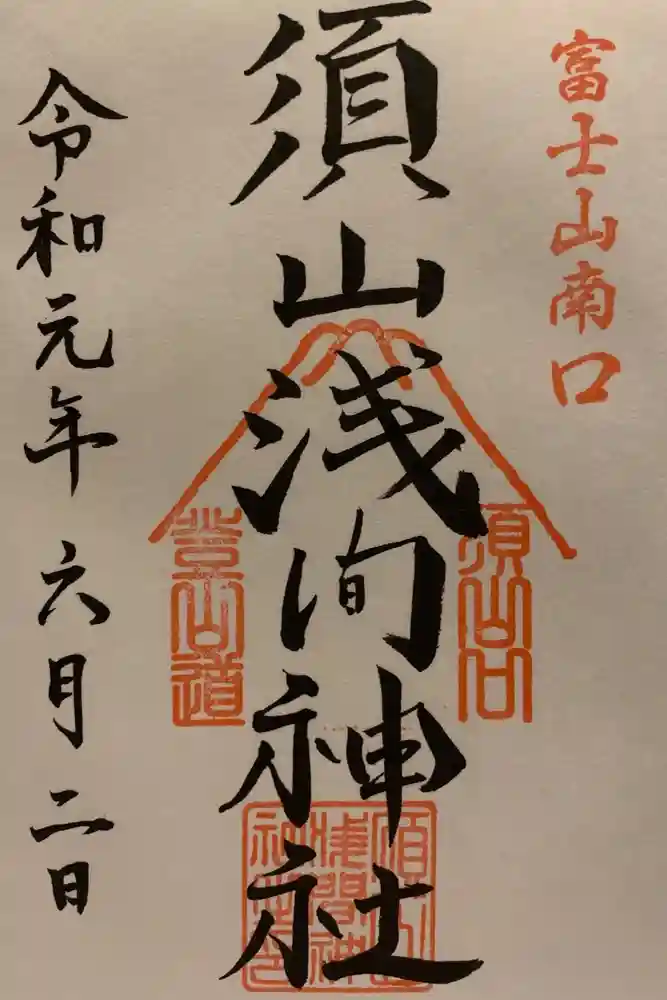 富士山南口
須山浅间神社
須山口
登山道
令和元年六月二日